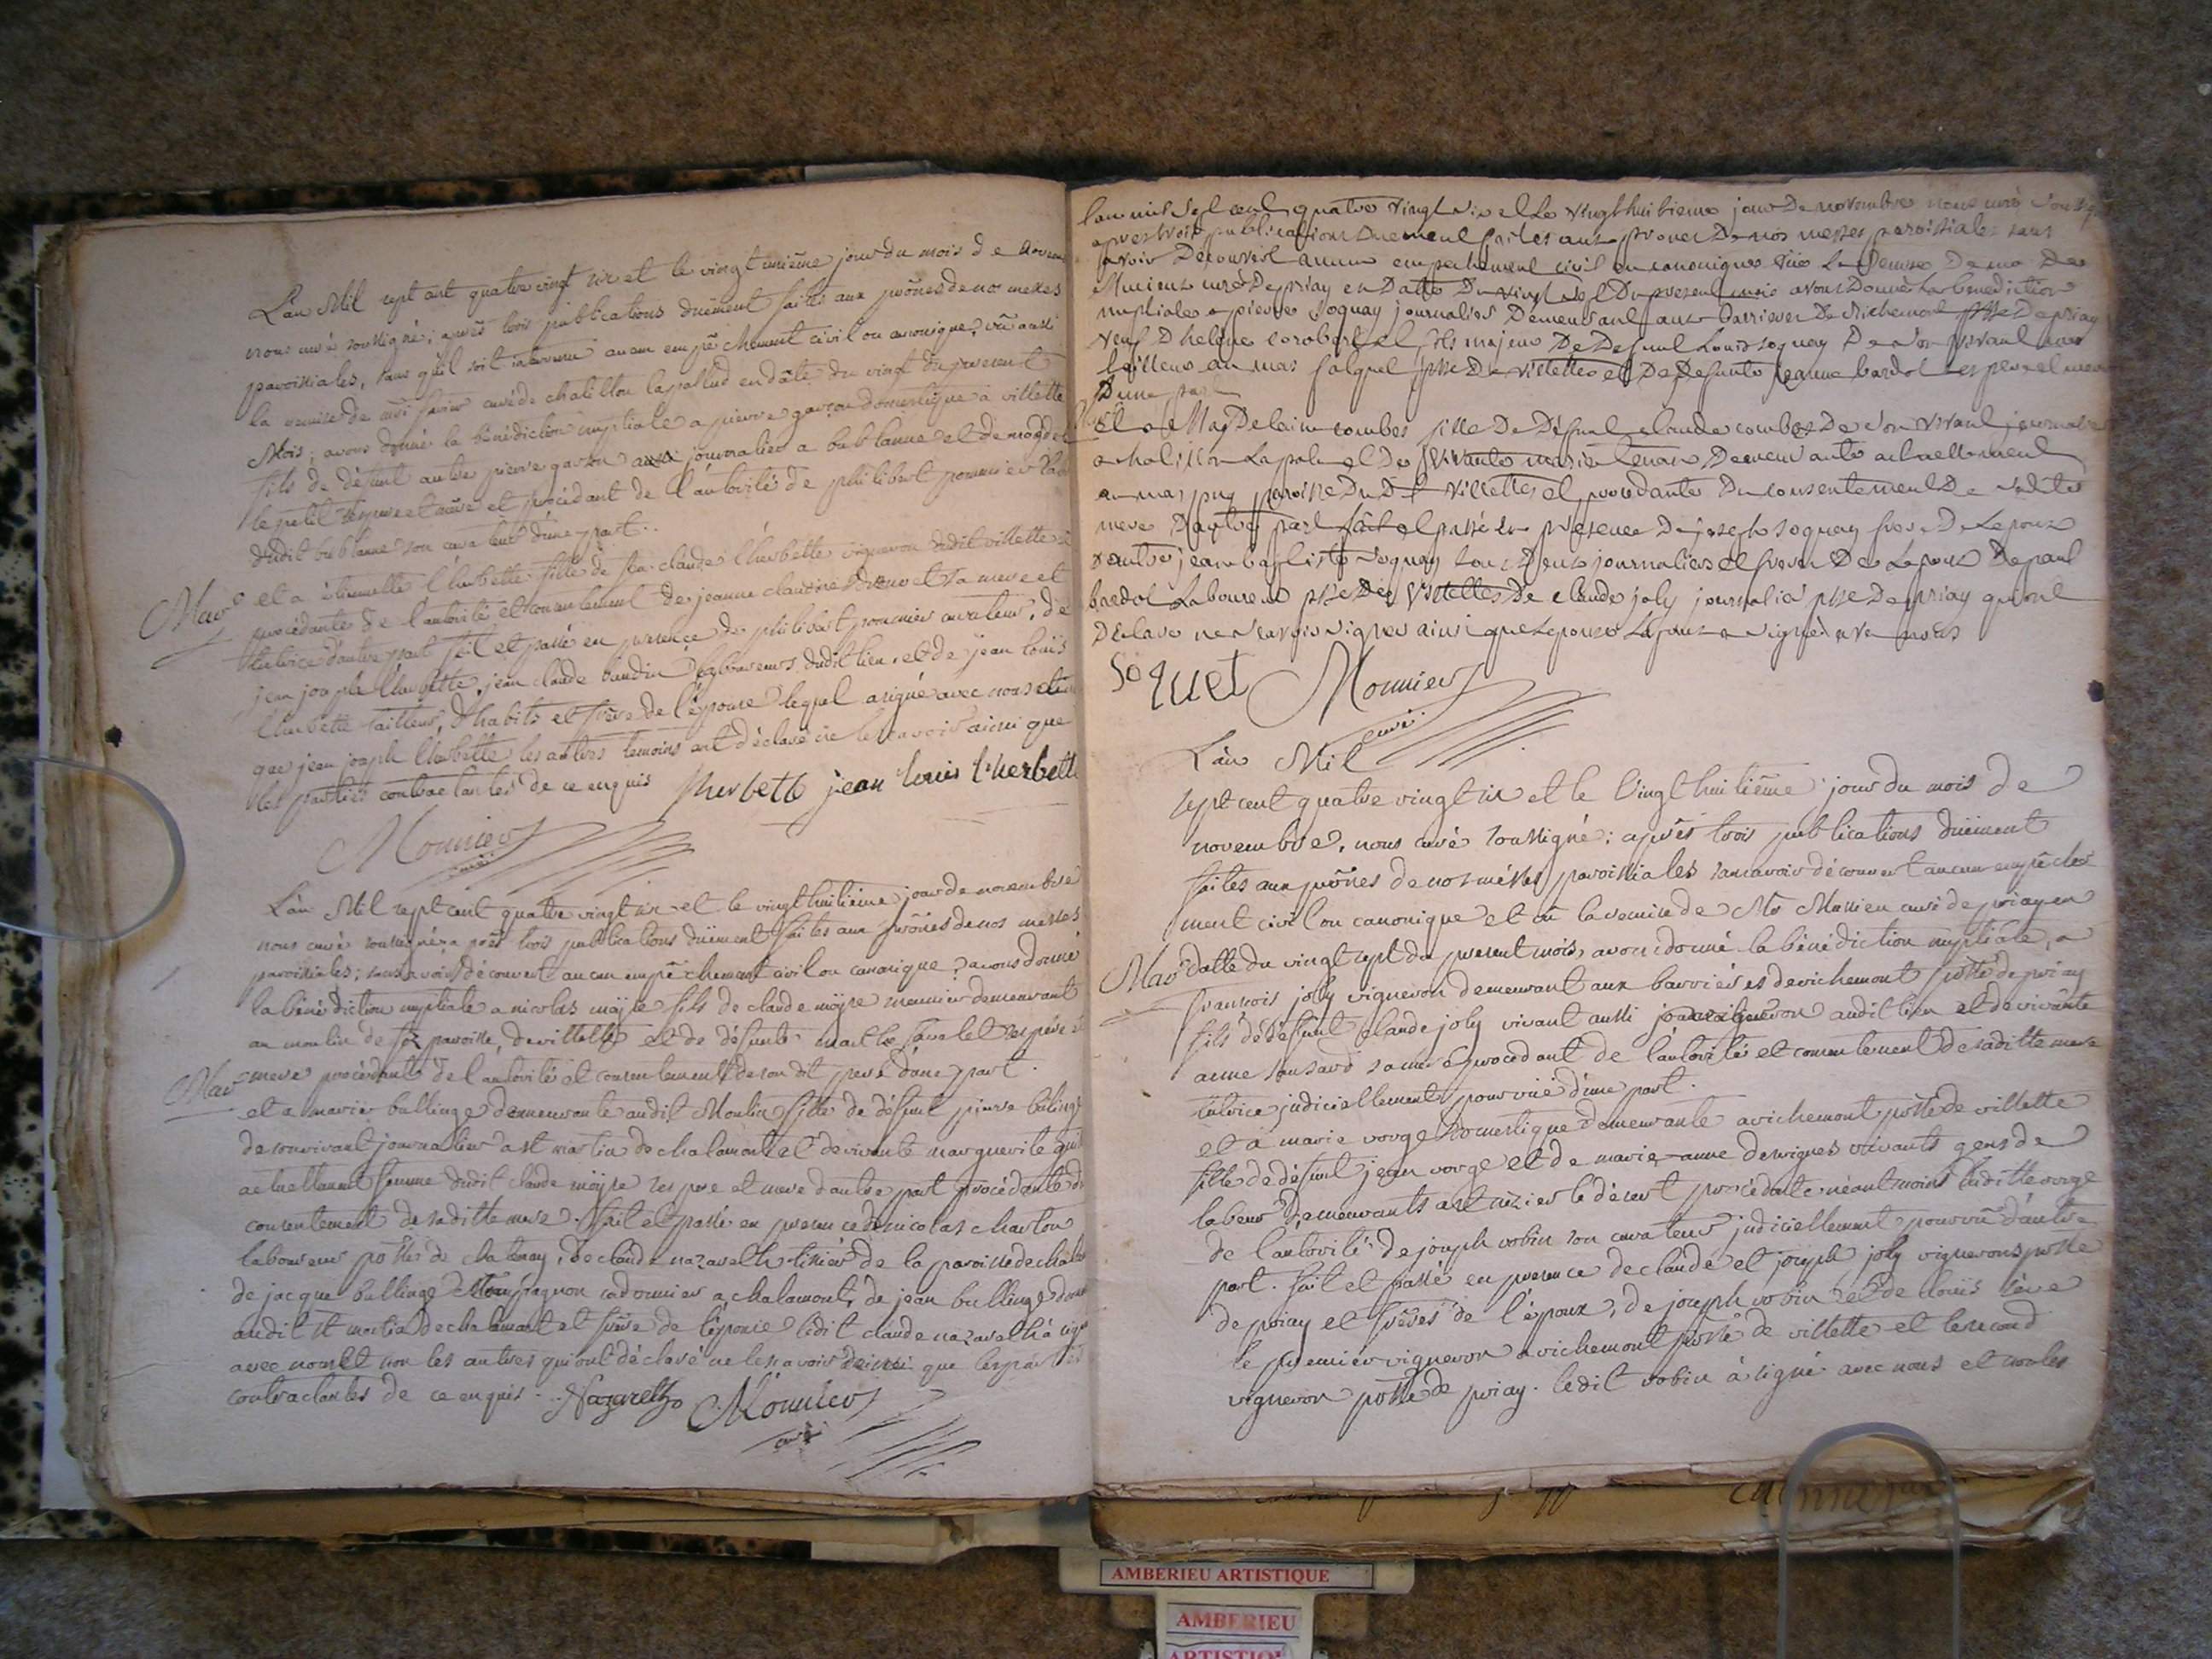 L'an Mil sept cent quatre vingt six et le vingt unième jour du mois de novem
nous curé soussigné; après trois publications duëment faites aux prônes de nos messes
paroissiales, sans qu'il soit intervenu aucun empêchement civil ou canonique, vû aussi
la remise de curé de chatillon lapallud en dâte du vingt du present
Mois; avons donné la bénédiction nuptiale a pierre garçon domestique à villette
fils de défunt autre pierre garson journalier a bublanne et de
le petit ses pere et mère et procédant de l'autorité de philibert pommier
dudit bublanne son curateur d'une part..
Mar.e et a étiennette l'herbette fille de feu claude l'herbette vigneron dudit villette
procédante de l'autorité et consentement de jeanne sa mere et
tutrice d'autre part fait et passé en presence de philibert pommier curateur, de
jean joseph l'herbette, jean claude baudin laboureurs dudit lieu, et de jean louis
l'herbette tailleur, d'habits et frère de l'épouse lequel a signé avec nous et
que jean joseph l'herbette les autres temoins ont déclaré ne le savoir ainsi que
les parties contractantes de ce enquis lherbette jean louis l'herbette
Monnier
curé
L'an Mil sept cent quatre vingt six et le vingt huitième jour de novembre
nous curé soussigné; après trois publications duëment faites aux prônes de nos messes
paroissiales; sans avoir découvert aucun empêchement civil ou canonique, avons donné
la bénédiction nuptiale a nicolas moÿse fils de claude moÿse meunier demeurant
au moulin de paroisse, de villette et de défunte marthe ses père et
Mar.e mere procédant de l'autorité et consentement de son dit pere d'une part.
et a marie bullinge demeurante audit Moulin fille de défunt pierre bulinge
de son vivant journalier a st martin de chalamont et de vivante marguerite
actuellement femme dudit claude moÿse ses pere et mere d'autre part procédante du
consentement de saditte mere. fait et passé en presence de nicolas charton
laboureur psse de chatenay, de claude nazareth tissier de la paroisse de
de jacque bullinge cadornier a chalamont, de jean bullinge
audit st martin de chalamont et frère de l'épouse ledit claude nazareth a signé
avec nous et non les autres qui ont déclaré ne le savoir que les parties
contractantes de ce enquis. Nazareth Monnier
curé
lan mil sept cent quatre vingt six et le vingt huitieme jour De novembre nous curé soussigné
apres trois publications Duement faites aux prones De nos messes paroissiales sans
avoir Decouvert aucun empechement civil ou canonique vüe La Remise De mr
Mussieux curé De priay en Datte Du vingt sept Du present mois avons Donné La benediction
nuptiale a pierre soquay journalier Demeurant aux barrieres De Richemont psse De priay
veuf D helene corobert et fils majeur De Defunt Louis soquay De son vivant
tailleur au mas falquet psse De vistettes et De Defunte jeanne bardot ses pere et mere
D'une part
et a MagDelaine combes fille De Défunt claude combes De son vivant journalier
a chatillon La palu et De vivante marie Demeurante actuellement
au mas puy paroisse Du Dt villettes et procedante Du consentement De saditte
mere D'autre part fait et passé en presence De joseph soquay frere De Lepoux
d'autre jean baptiste soquay tous Deux journaliers et freres De Lepoux De paul
bardot Laboureur psse De vistettes De claude joly journalier psse De priay qui ont
Déclaré ne savoir signer ainsi que lepouse Lepoux a signé avec nous
Soquet Monnier
curé
L'an Mil
sept cent quatre vingt six et le vingt huitième jour du mois de
novembre, nous curé soussigné: après trois publications duëment
faites aux prônes de nos messes paroissiales sans avoir découvert aucun empêche
ment civil ou canonique et vû la remise de Mr Mussieu curé de priay en
Mar.e datte du vingt sept du present mois avons donné la bénédiction nuptiale, a
francois joly vigneron demeurant aux barrières de richemont psse de priay
fils de défunt claude joly vivant aussi vigneron audit lieu et de vivante
anne sa mere procedant de l'autorité et consentement de saditte mere
tutrice judiciellement pourvüe d'une part.
et à marie vorge domestique demeurante a richemont psse de villette
fille de défunt jean vorge et de marie anne vivants gens de
labeur demeurants a st nizier le désert procédante néantmoins laditte vorge
de l'autorité de joseph vobin son curateur judiciellement pourvû d'autre
part. fait et passé en presence de claude et joseph joly vignerons psse
de priay et frères de l'époux, de joseph vobin et de louis
le premier vigneron a richemont psse de villette et le second
vigneron psse de priay. ledit vobin à signé avec nous et non les
AMBERIEU ARTISTIQUE
AMBERIEU
ARTISTIQUE